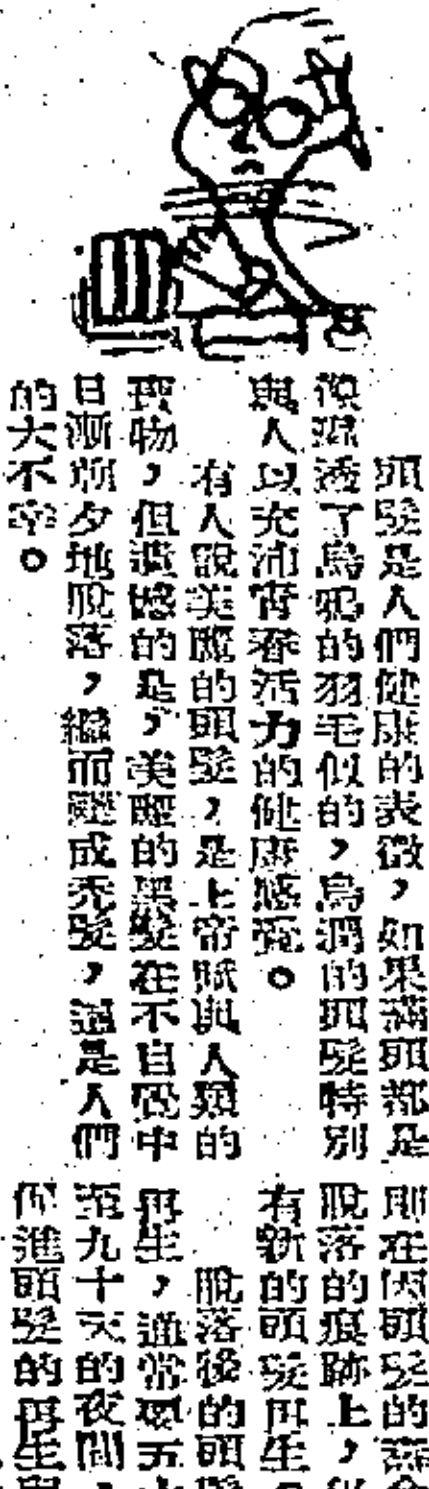 頭髮是人們健康的表徵，如果滿頭都是
像濕透了烏鴉的羽毛似的，烏潤的頭髮特別
與人以充沛青春活力的健康感覺。
有人說美麗的頭髮，是上帝賦與人類的
寶物，但遺憾的是，美麗的黑髮在不自覺中
日漸漸夕地脫落，繼而變成禿髮，這是人們
的大不幸。
則在因頭髮的
脫落的痕跡上，
有新的頭髮再生。
脫落後的頭
再生，通常要五
至九十天的夜間，
促進頭髮的再生